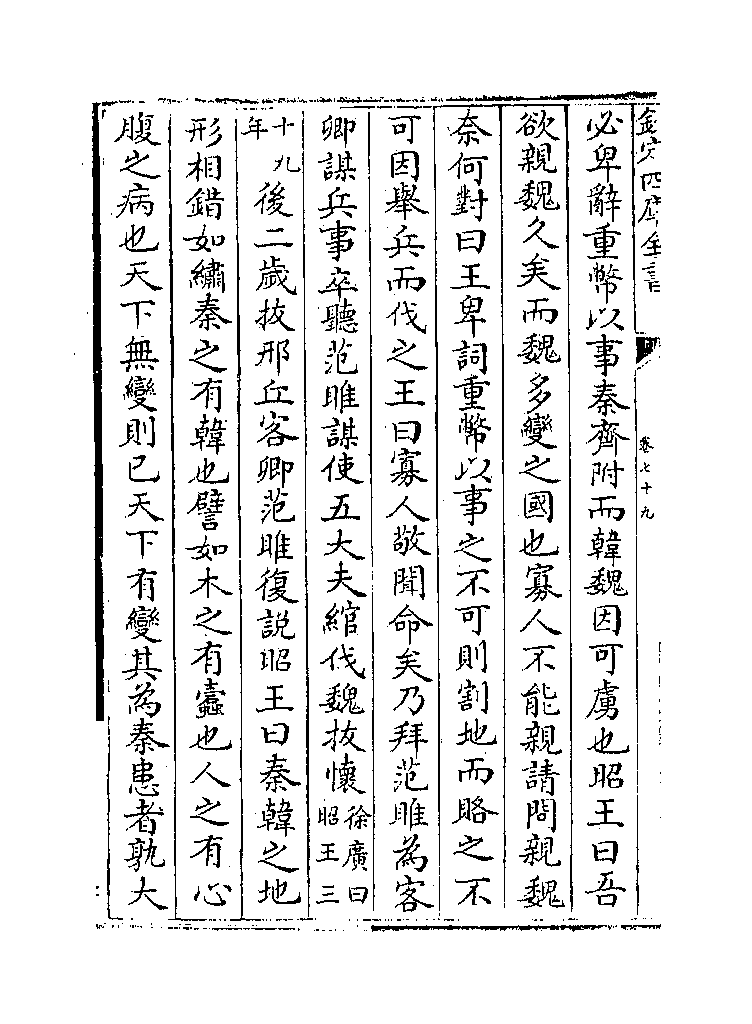 欽定四庫全書
卷七十九
必卑辭重幣以事秦齊附而韓魏因可虜也昭王曰吾
欲親魏久矣而魏多變之國也寡人不能親請問親魏
奈何對曰王卑詞重幣以事之不可則割地而賂之不
可因舉兵而伐之王曰寡人敬聞命矣乃拜范雎為客
卿謀兵事卒聽范雎謀使五大夫綰伐魏拔懷徐廣曰昭王三
十九年後二歲拔邢丘客卿范雎復説昭王曰秦韓之地
形相錯如繡秦之有韓也譬如木之有蠹也人之有心
腹之病也天下無變則已天下有變其為秦患者孰大